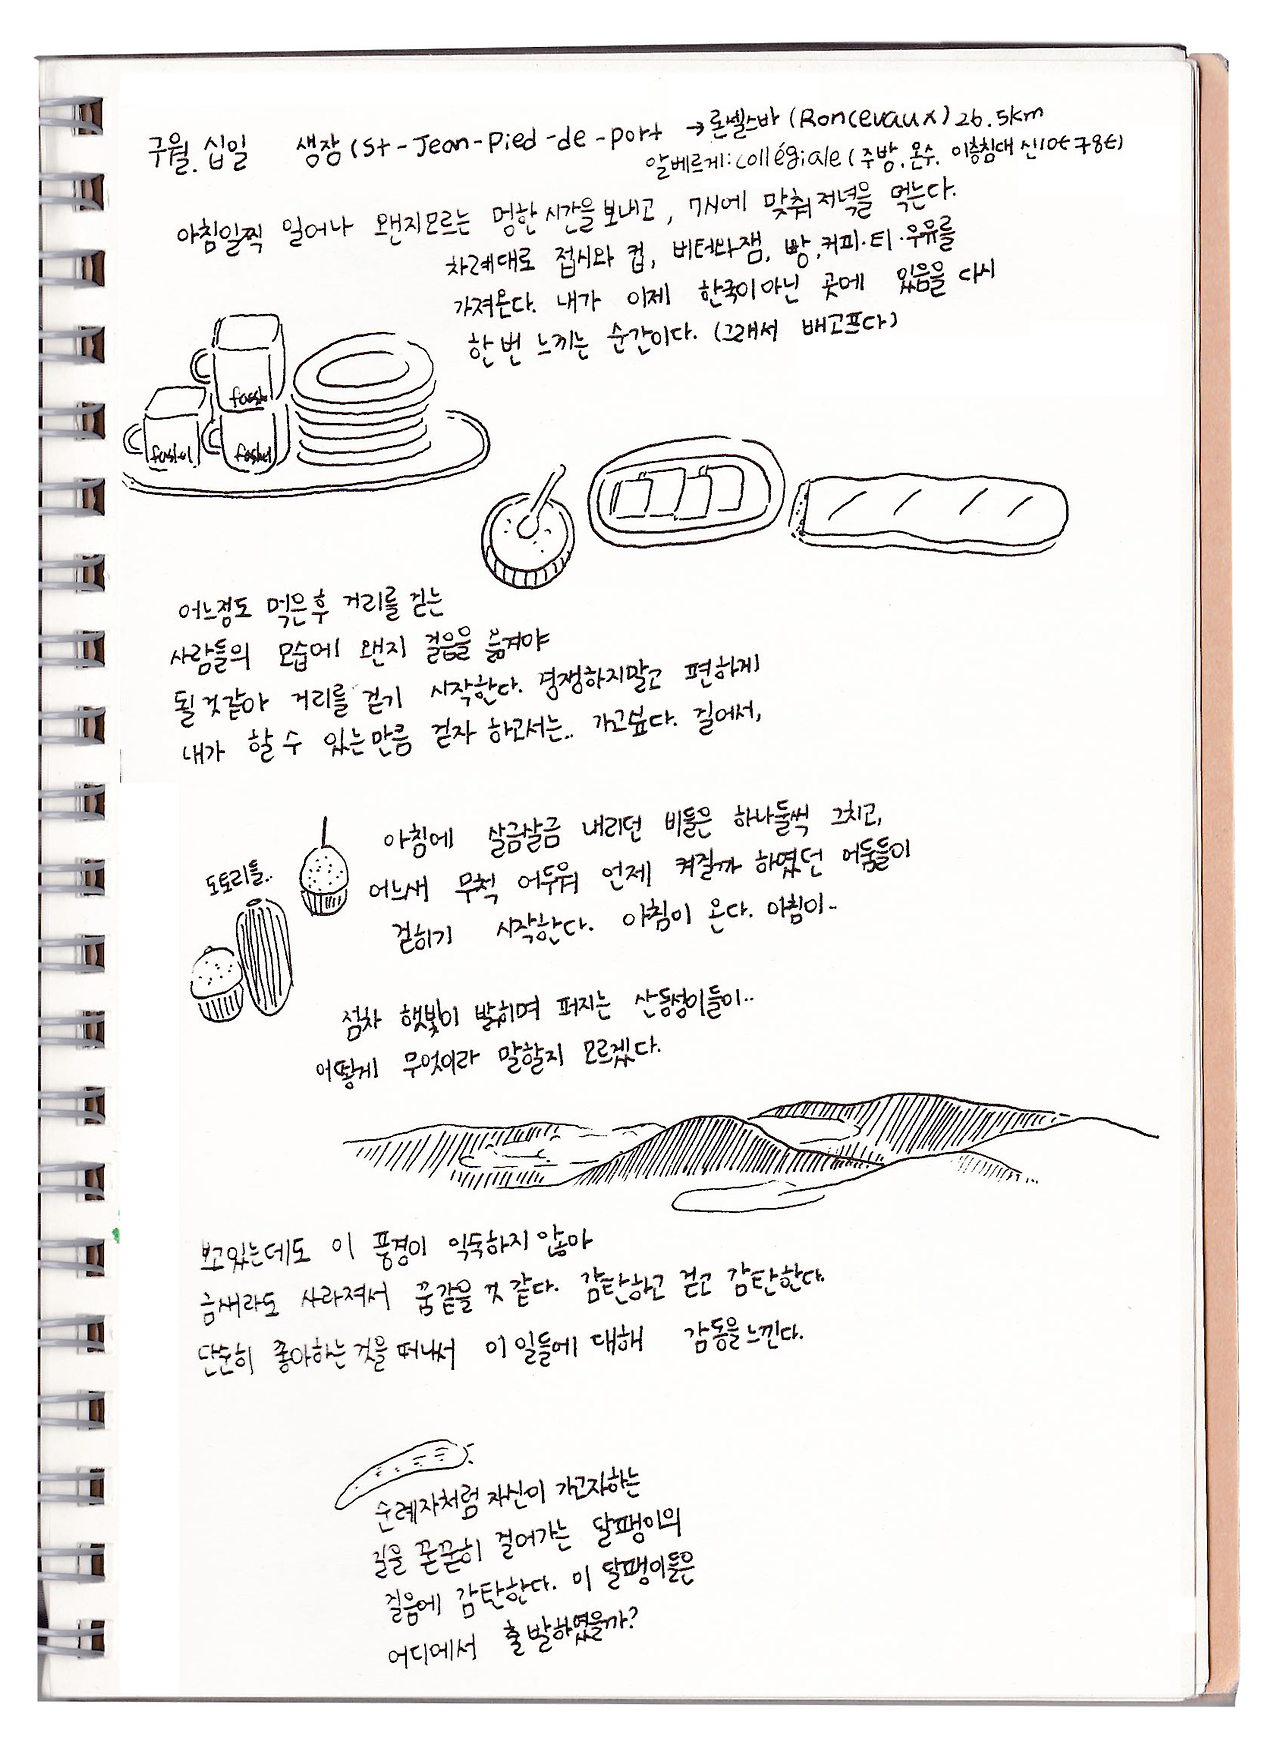 구월. 십일 생장 (St-Jean-Pied-de-port → 론셀스바 (Roncevaux) 26.5km
알베르게: collégiale (주방, 온수, 이층침대 신10€ 구8€)
아침일찍 일어나 왠지모르는 멍한 시간을 보내고, 7시에 맞춰 저녁을 먹는다.
차례대로 접시와 컵, 버터와 잼, 빵, 커피·티·우유를
가져온다. 내가 이제 한국이 아닌 곳에 있음을 다시
한번 느끼는 순간이다. (그래서 배고프다)
어느정도 먹은후 거리를 걷는
사람들의 모습에 왠지 걸음을 옮겨야
될것같아 거리를 걷기 시작한다. 경쟁하지말고 편하게
내가 할 수 있는만큼 걷자 하고서는.. 가고싶다. 길어서,
아침에 살금살금 내리던 비들은 하나둘씩 그치고,
도토리들..
어느새 무척 어두워 언제 켜질까 하였던 어둠들이
걷히기 시작한다. 아침이 온다. 아침이..
점차 햇빛이 밝히며 퍼지는 산등성이들이..
어떻게 무엇이라 말할지 모르겠다.
보고있는데도 이 풍경이 익숙하지 않아
금새라도 사라져서 꿈같을 것 같다. 감탄하고 걷고 감탄한다.
단순히 좋아하는 것을 떠나서 이 일들에 대해 감동을 느낀다.
순례자처럼 자신이 가고자하는
길을 꾿꾿히 걸어가는 달팽이의
걸음에 감탄한다. 이 달팽이들은
어디에서 출발하였을까?